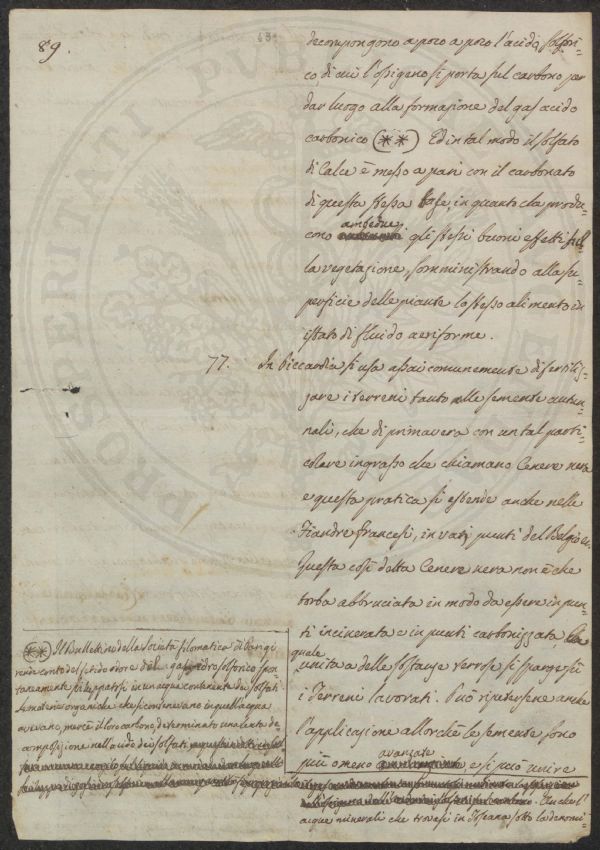 89.
decompongono a poco a poco l'acido solfori-
co, di cui l'ossigeno si porta sul carbono per
dar luogo alla formazione del gas acido
carbonico (**) Ed in tal modo il solfato
di Calce è messo a pari con il carbonato
di questa stessa base, in quanto che produ-
cono ambedue gli stessi buoni effetti sul
la vegetazione, somministrando alla su-
perficie delle piante lo stesso alimento in
istato di fluido aeriforme.
77. In Piccardia si usa assai comunemente di fertiliz-
zare i terreni tanto nelle semente autun-
nali, che di primavera con un tal parti-
colare ingrasso che chiamano Cenere nera
e questa pratica si estende anche nelle
Fiandre francesi, in vari punti del Belgio
Questa così detta Cenere nera non è che
torba abbruciata in modo da essere in pun-
ti incinerata e in punti carbonizzata, la
quale
unita a delle sostanze terrose si sparge su
i Terreni lavorati. Può ripetersene anche
l'applicazione allorchè le semente sono
più o meno avanzate, e si può unire
(**) Il Bullettino della Società filomatica di Parigi
rende conto del fetido odore del gas idrosolforico spon-
taneamente sviluppatosi in un'acqua contenente dei solfati
le materie organiche che si contenevano in quell'acqua
avevano, mercè il loro carbone, determinato una lenta de-
composizione nell'acido dei solfati
Anche l'
acque minerali che trovasi in Toscana sotto la denomi-